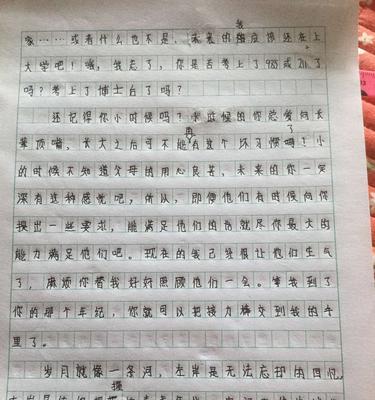 家……或者什么也不是,未来的我应该还在上
大学吧!哦,我忘了,你是否考上了985或211了
吗?考上了博士后了吗?
还记得你小时候吗?小时候的你总爱向长
辈顶嘴,长大之后可不能再有这个坏习惯了吗?小
的时候不知道父母的用心良苦,未来的你一定
深有这种感觉吧,所以,即便他们有时候向你
提出一些要求,能满足他们的话就尽你最大的
能力满足他们吧。现在的我已经很让他们生气
了,麻烦你替我好好照顾他们一会。等我到了
你的那个年纪,你就可以把接力棒交到我的手
里了。
岁月就像一条河,左岸是无法忘却的回忆,